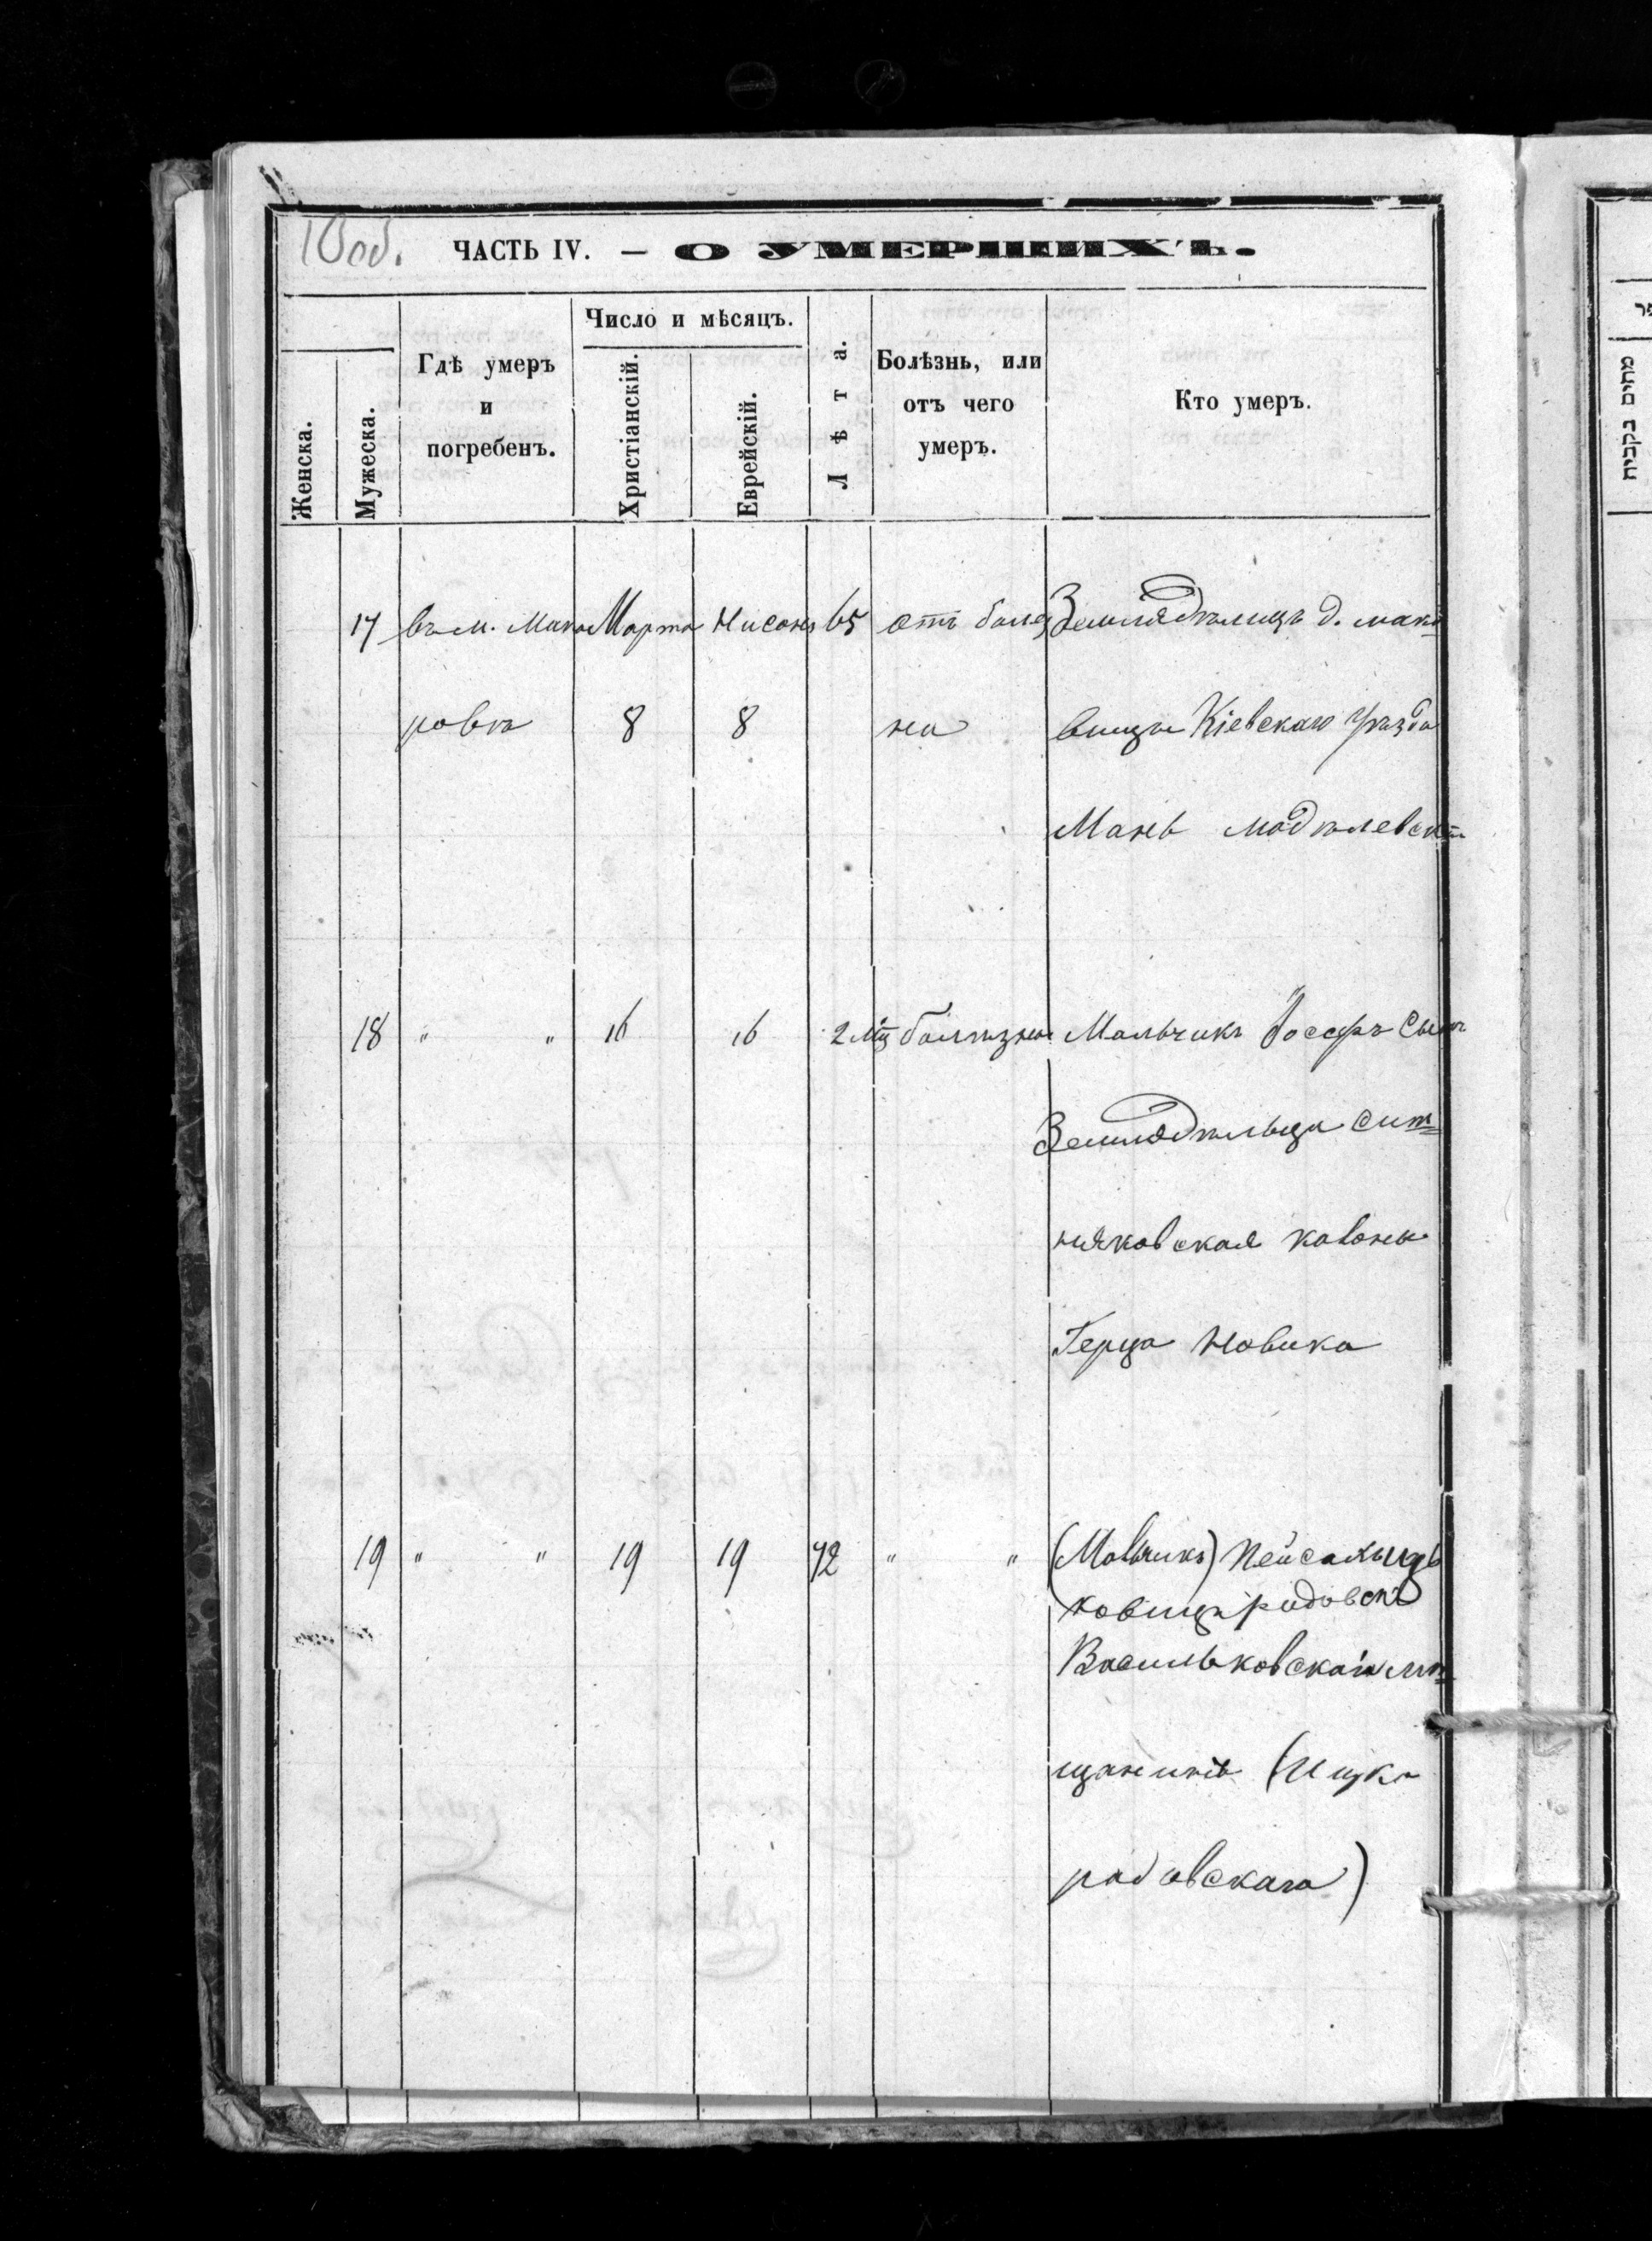 10 об.
ЧАСТЬ IV. — О УМЕРШИХЪ.
Женска.
Мужеска.
Гдѣ умеръ
и
погребенъ.
Число и мѣсяцъ.
Христіанскій.
Еврейскій.
Лѣта.
Болѣзнь, или
отъ чего
умеръ.
Кто умеръ.
17 въ м. Мака Марта Нисона 65 отъ болѣз Земледѣлецъ д. мако
ровѣ 8 8 на вищи Кіевскаго уѣзда
Мань
18 " " 16 16 2 мц болѣзни Мальчикъ Іосефъ Сынъ
Земледѣльца Сит
няковская колоны
Герца Новика
19 " " 19 19 72 " " (Мальчикъ) Пейсахъ Иць
ковичъ радовскі
Васильковскаго мѣ
щанинъ (Ицка
радовскаго)
פר
מתים בקביה